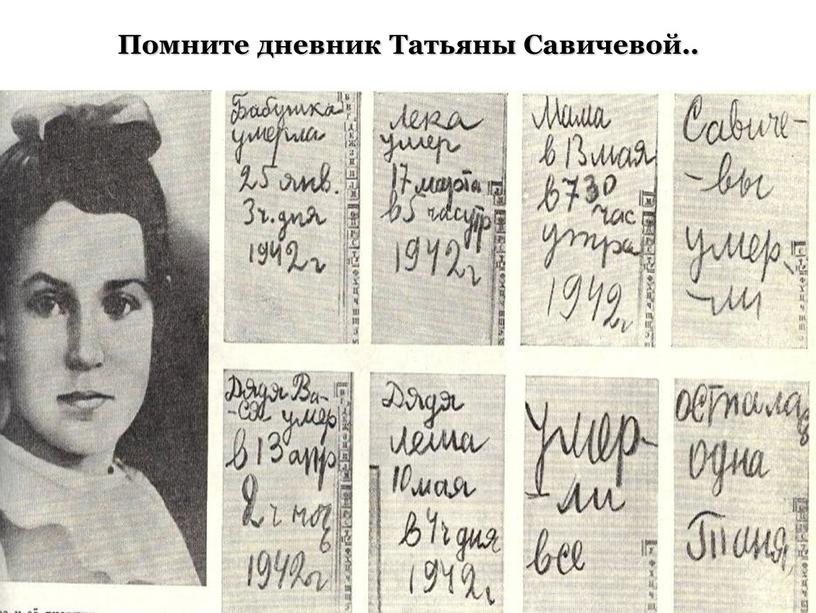 Помните дневник Татьяны Савичевой..
Бабушка
умерла
25 янв.
3ч. дня
1942г
Лека
умер
17 марта
в 5 час утр
1942г
Мама
в 13 мая
в 730
час
утра
1942г
Савиче-
-вы
умер
-ли
Дядя Ва-
-ся умер
в 13 апр
2ч ноч
1942г
Дядя
Леша
10 мая
в 4ч дня
1942г
Умер-
-ли
все
Осталась
одна
Таня